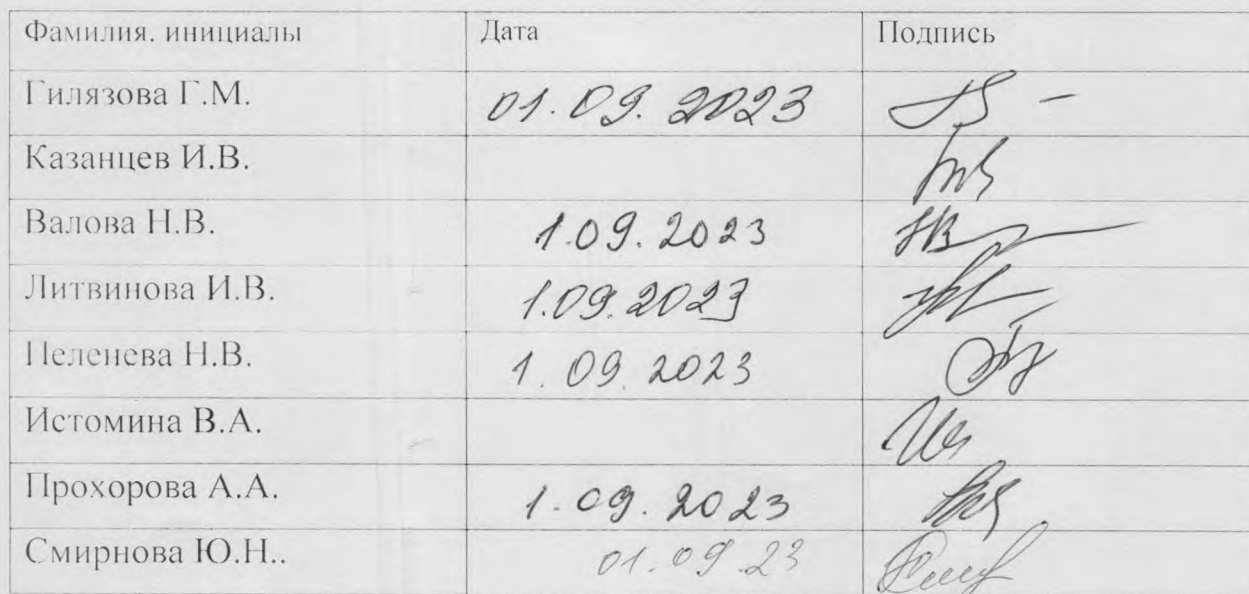 Фамилия. инициалы Дата Подпись
Гилязова Г.М. 01.09.2023
Казанцев И.В.
Валова Н.В. 1.09.2023
Литвинова И.В. 1.09.2023
Пеленева Н.В. 1.09.2023
Истомина В.А.
Прохорова А.А. 1.09.2023
Смирнова Ю.Н.. 01.09.23